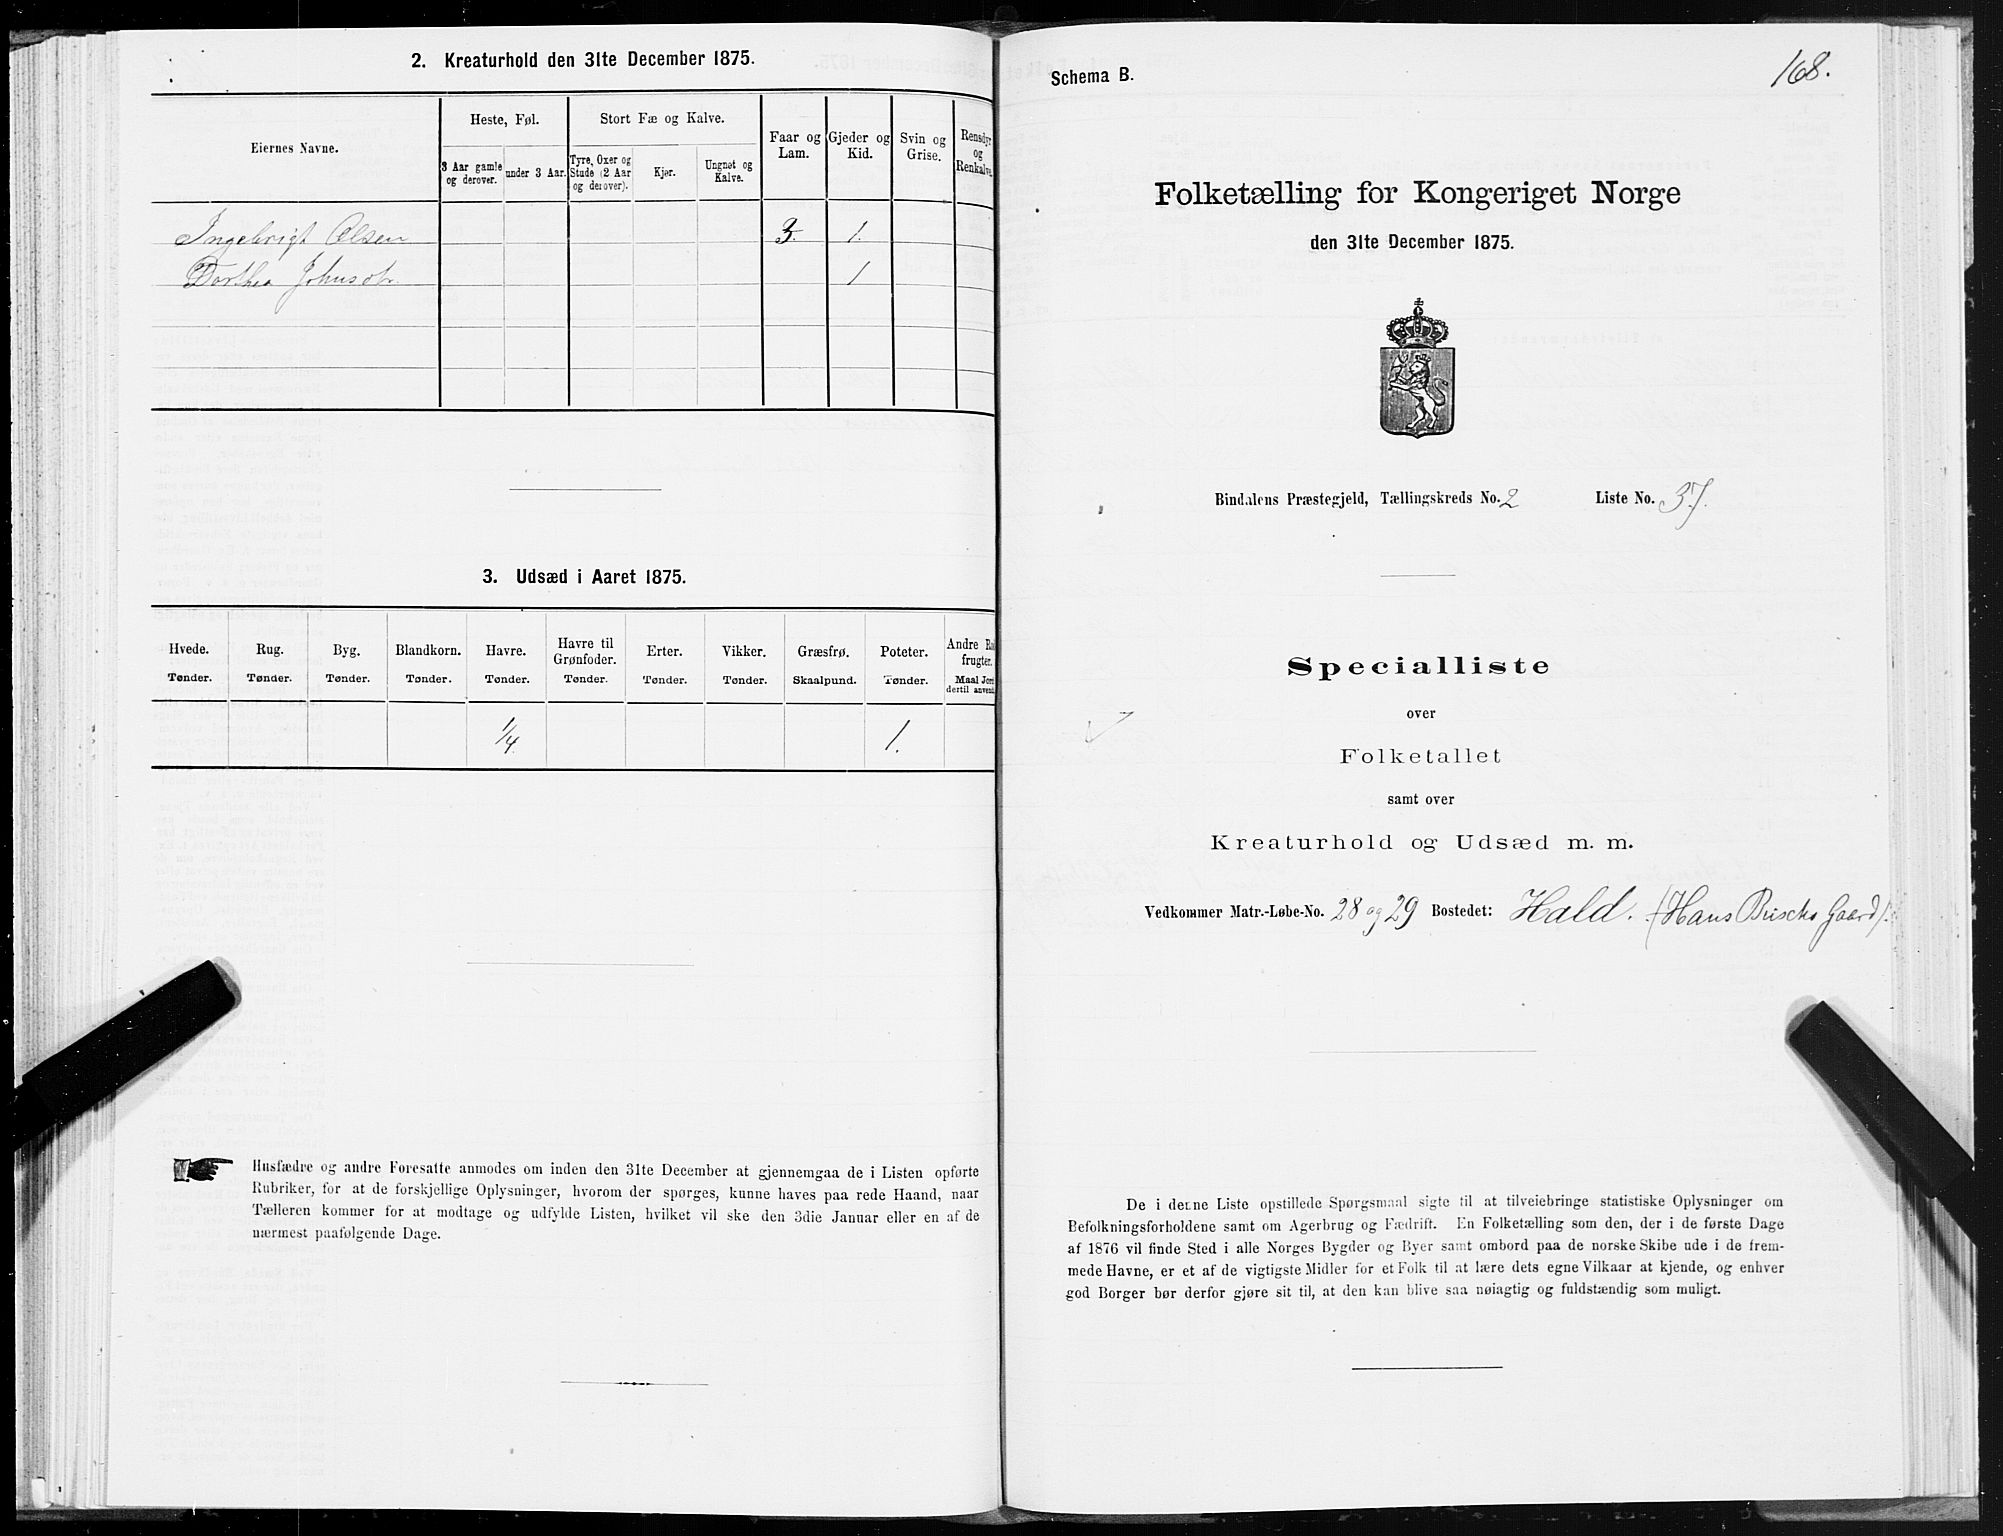 2. Kreaturhold den 31te December 1875.
Eiernes Navne.
Heste, Føl.
Stort Fæ og Kalve.
3 Aar gamle og derover.
under 3 Aar.
Tyre, Oxer og Stude (2 Aar og derover).
Kjør.
Ungnøt og Kalve.
Faar og Lam.
Gjeder og Kid.
Svin og Grise.
Rensdyr og Renkalve.
Ingebrigt Olsen 3. 1.
Dorthea Johnsdtr. 1
3. Udsæd i Aaret 1875.
Hvede. Rug. Byg. Blandkorn. Havre. Havre til Grønfoder. Erter. Vikker. Græsfrø. Poteter. Andre Ro frugter.
Tønder. Tønder. Tønder. Tønder. Tønder. Tønder. Tønder. Tønder. Skaalpund. Tønder. Maal Jord dertil anvend
1/4 1.
Husfædre og andre Foresatte anmodes om inden den 31te December at gjennemgaa de i Listen opførte
Rubriker, for at de forskjellige Oplysninger, hvorom der spørges, kunne haves paa rede Haand, naar
Tælleren kommer for at modtage og udfylde Listen, hvilket vil ske den 3die Januar eller en af de
nærmest paafølgende Dage.
Schema B.
168.
Folketælling for Kongeriget Norge
den 31te December 1875.
Bindalens Præstegjeld, Tællingskreds No. 2 Liste No. 37.
Specialliste
over
Folketallet
samt over
Kreaturhold og Udsæd m. m.
Vedkommer Matr.-Løbe-No. 28 og 29 Bostedet: Hald. (Hans Buschs Gaard).
De i denne Liste opstillede Spørgsmaal sigte til at tilveiebringe statistiske Oplysninger om
Befolkningsforholdene samt om Agerbrug og Fædrift. En Folketælling som den, der i de første Dage
af 1876 vil finde Sted i alle Norges Bygder og Byer samt ombord paa de norske Skibe ude i de frem-
mede Havne, er et af de vigtigste Midler for et Folk til at lære dets egne Vilkaar at kjende, og enhver
god Borger bør derfor gjøre sit til, at den kan blive saa nøiagtig og fuldstændig som muligt.